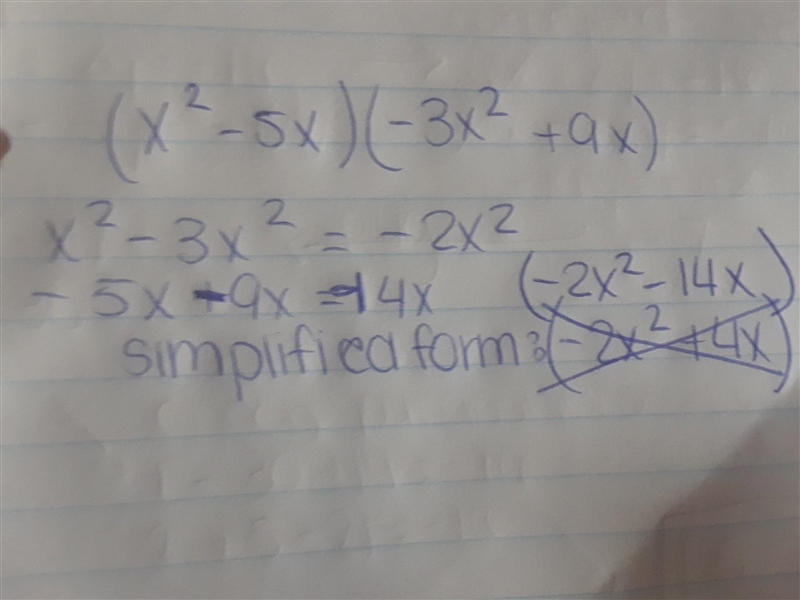 (x² - 5x)(-3x² + 9x)
x² - 3x² = -2x²
- 5x - 9x = -14x (-2x² - 14x)
simplified form: (-2x² + 4x)